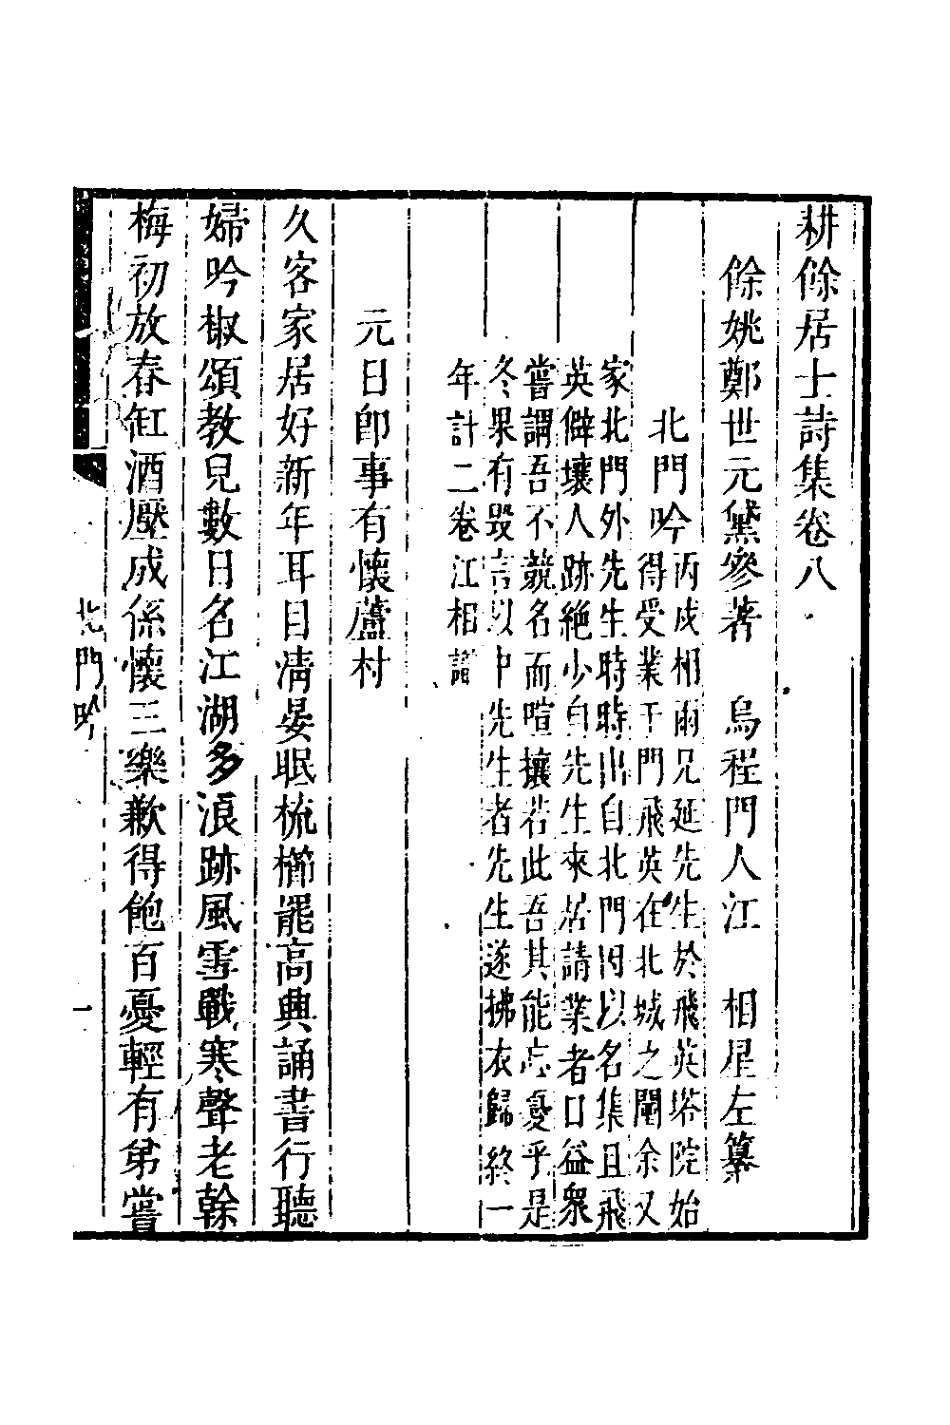 耕餘居士詩集卷八
餘姚鄭世元黛參著　烏程門人江　相星左纂
北門吟
丙戌相雨兄延先生於飛英塔院始
得受業于門飛英在北城之闉余又
家北門外先生時時出自北門因以名集且飛
英僻壤人跡絶少自先生來居請業者口益衆
嘗謂吾不競名而喧攘若此吾其能忘憂乎是
冬果有毀言以中先生者先生遂拂衣歸終一
年計二卷江相識
元日卽事有懷蘆村
久客家居好新年耳目淸晏眠梳櫛罷高興誦書行聽
婦吟椒頌教兒數日名江湖多浪跡風雪戰寒聲老幹
梅初放春缸酒壓成係懷三樂歉得飽百憂輕有弟嘗
北門吟
一